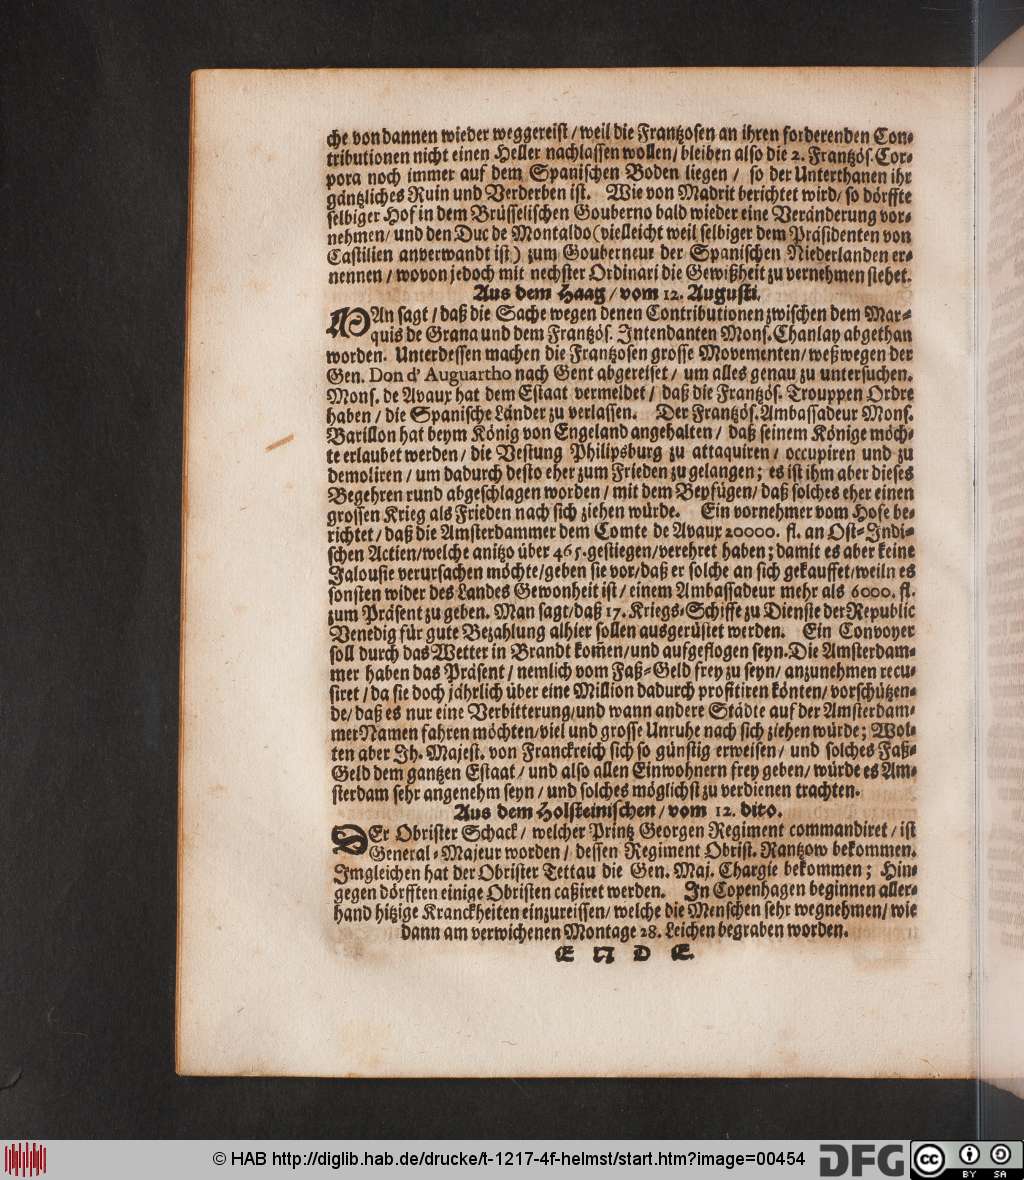 che von dannen wieder weggereist / weil die Frantzosen an ihren forderenden Con-
tributionen nicht einen Heller nachlassen wollen / bleiben also die 2. Frantzös. Cor-
pora noch immer auf dem Spanischen Boden liegen / so der Unterthanen ihr
gäntzliches Ruin und Verderben ist. Wie von Madrit berichtet wird / so dörffte
selbiger Hof in dem Brüsselischen Gouberno bald wieder eine Veränderung vor-
nehmen / und den Duc de Montaldo (vielleicht weil selbiger dem Präsidenten von
Castilien anverwandt ist) zum Gouberneur der Spanischen Niederlanden er-
nennen / wovon jedoch mit nechster Ordinari die Gewißheit zu vernehmen stehet.
Aus dem Haag / vom 12. Augusti.
MAn sagt / daß die Sache wegen denen Contributionen zwischen dem Mar-
quis de Grana und dem Frantzös. Intendanten Mons. Chanlay abgethan
worden. Unterdessen machen die Frantzosen grosse Movementen / weßwegen der
Gen. Don d' Auguartho nach Gent abgereiset / um alles genau zu untersuchen.
Mons. de Avaux hat dem Estaat vermeldet / daß die Frantzös. Trouppen Ordre
haben / die Spanische Länder zu verlassen. Der Frantzös. Ambassadeur Mons.
Barillon hat beym König von Engeland angehalten / daß seinem Könige möch-
te erlaubet werden / die Vestung Philipsburg zu attaquiren / occupiren und zu
demoliren / um dadurch desto eher zum Frieden zu gelangen; es ist ihm aber dieses
Begehren rund abgeschlagen worden / mit dem Beyfügen / daß solches eher einen
grossen Krieg als Frieden nach sich ziehen würde. Ein vornehmer vom Hofe be-
richtet / daß die Amsterdammer dem Comte de Avaux 20000. fl. an Ost-Indi-
schen Actien / welche anitzo über 465. gestiegen / verehret haben; damit es aber keine
Jalousie verursachen möchte / geben sie vor / daß er solche an sich gekauffet / weiln es
sonsten wider des Landes Gewonheit ist / einem Ambassadeur mehr als 6000. fl.
zum Präsent zu geben. Man sagt / daß 17. Kriegs-Schiffe zu Dienste der Republic
Venedig für gute Bezahlung alhier sollen ausgerüstet werden. Ein Convoyer
soll durch das Wetter in Brandt kom̃en / und aufgeflogen seyn. Die Amsterdam-
mer haben das Präsent / nemlich vom Faß-Geld frey zu seyn / anzunehmen recu-
siret / da sie doch jährlich über eine Million dadurch profitiren könten / vorschützen-
de / daß es nur eine Verbitterung / und wann andere Städte auf der Amsterdam-
mer Namen fahren möchten / viel und grosse Unruhe nach sich ziehen würde; Wol-
ten aber Ih. Majest. von Franckreich sich so günstig erweisen / und solches Faß-
Geld dem gantzen Estaat / und also allen Einwohnern frey geben / würde es Am-
sterdam sehr angenehm seyn / und solches möglichst zu verdienen trachten.
Aus dem Holsteinischen / vom 12. dito.
DEr Obrister Schack / welcher Printz Georgen Regiment commandiret / ist
General-Majeur worden / dessen Regiment Obrist. Rantzow bekommen.
Imgleichen hat der Obrister Tettau die Gen. Maj. Chargie bekommen; Hin-
gegen dörfften einige Obristen caßiret werden. In Copenhagen beginnen aller-
hand hitzige Kranckheiten einzureissen / welche die Menschen sehr wegnehmen / wie
dann am verwichenen Montage 28. Leichen begraben worden.
E N D E.
© HAB http://diglib.hab.de/drucke/t-1217-4f-helmst/start.htm?image=00454
DFG
cc
BY SA